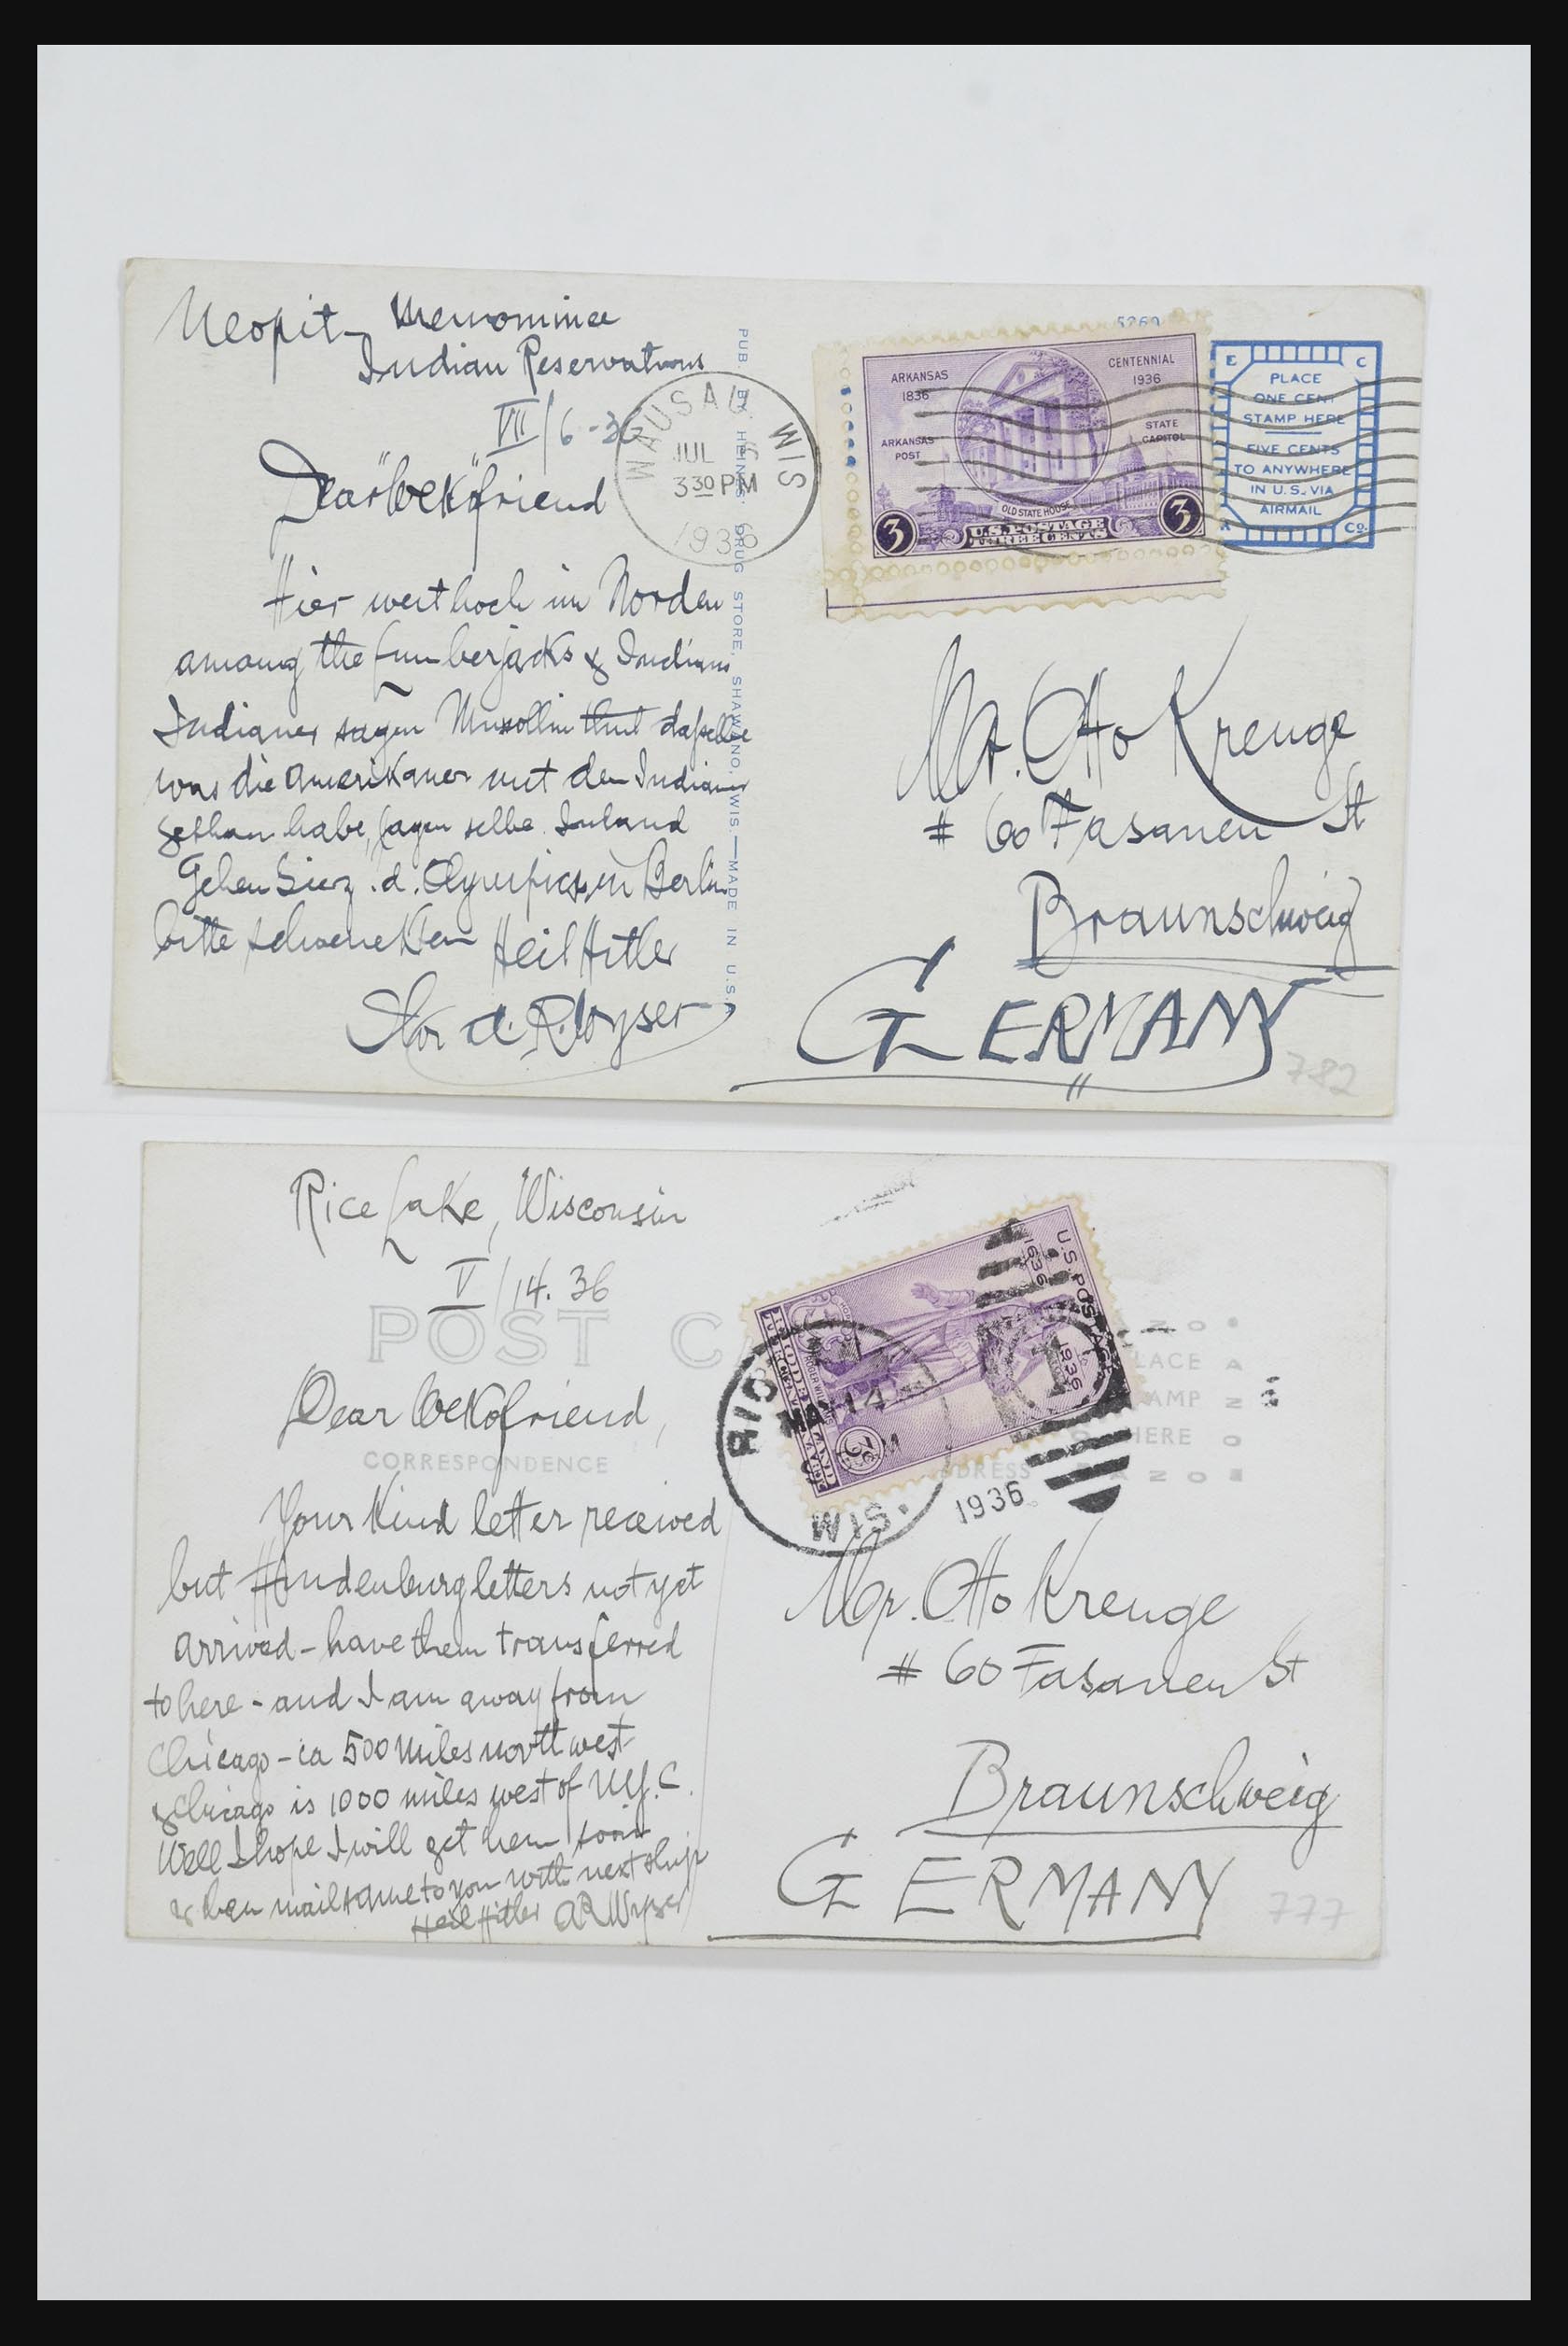 Neopit - Menominee
Indian Reservations
VII/6-36
Dear "Wekofriend
Hier weit hoch im Norden
among the Lumberjacks & Indians
Indianer sagen Mussolini thut daßelbe
was die Amerikaner mit den Indianer
gethan habe, sagen selbe
Gehen Sie z. d. Olympics in Berlin
bitte
Heil Hitler
A. R. Wyser
PUB. BY HEINS' DRUG STORE, SHAWANO, WIS. — MADE IN U.S.A.
WAUSAU WIS
JUL 6
3 30 PM
1936
5260
ARKANSAS
1836
CENTENNIAL
1936
ARKANSAS
POST
STATE
CAPITOL
OLD STATE HOUSE
3
U.S. POSTAGE
THREE CENTS
3
E C
PLACE
ONE CENT
STAMP HERE
FIVE CENTS
TO ANYWHERE
IN U.S. VIA
AIRMAIL
K Co.
Mr. Otto Krenge
# 60 Fasanen St
Braunschweig
GERMANY
782
Rice Lake, Wisconsin
V/14.36
POST CA
Dear Wekofriend,
CORRESPONDENCE
Your kind letter received
but Hindenburg letters not yet
arrived - have them transferred
to here - and I am away from
Chicago - ca 500 miles northwest
& Chicago is 1000 miles west of N.Y.C.
Well I hope I will get them soon
& then mail same to you with next ship
Heil Hitler AR Wyser
U.S. POSTAGE
1636
1936
RHODE ISLAND
3c
RIC
MAY 14
M
WIS.
1936
LACE
AMP
HERE
DDRESS
Mr. Otto Krenge
# 60 Fasanen St
Braunschweig
GERMANY
777